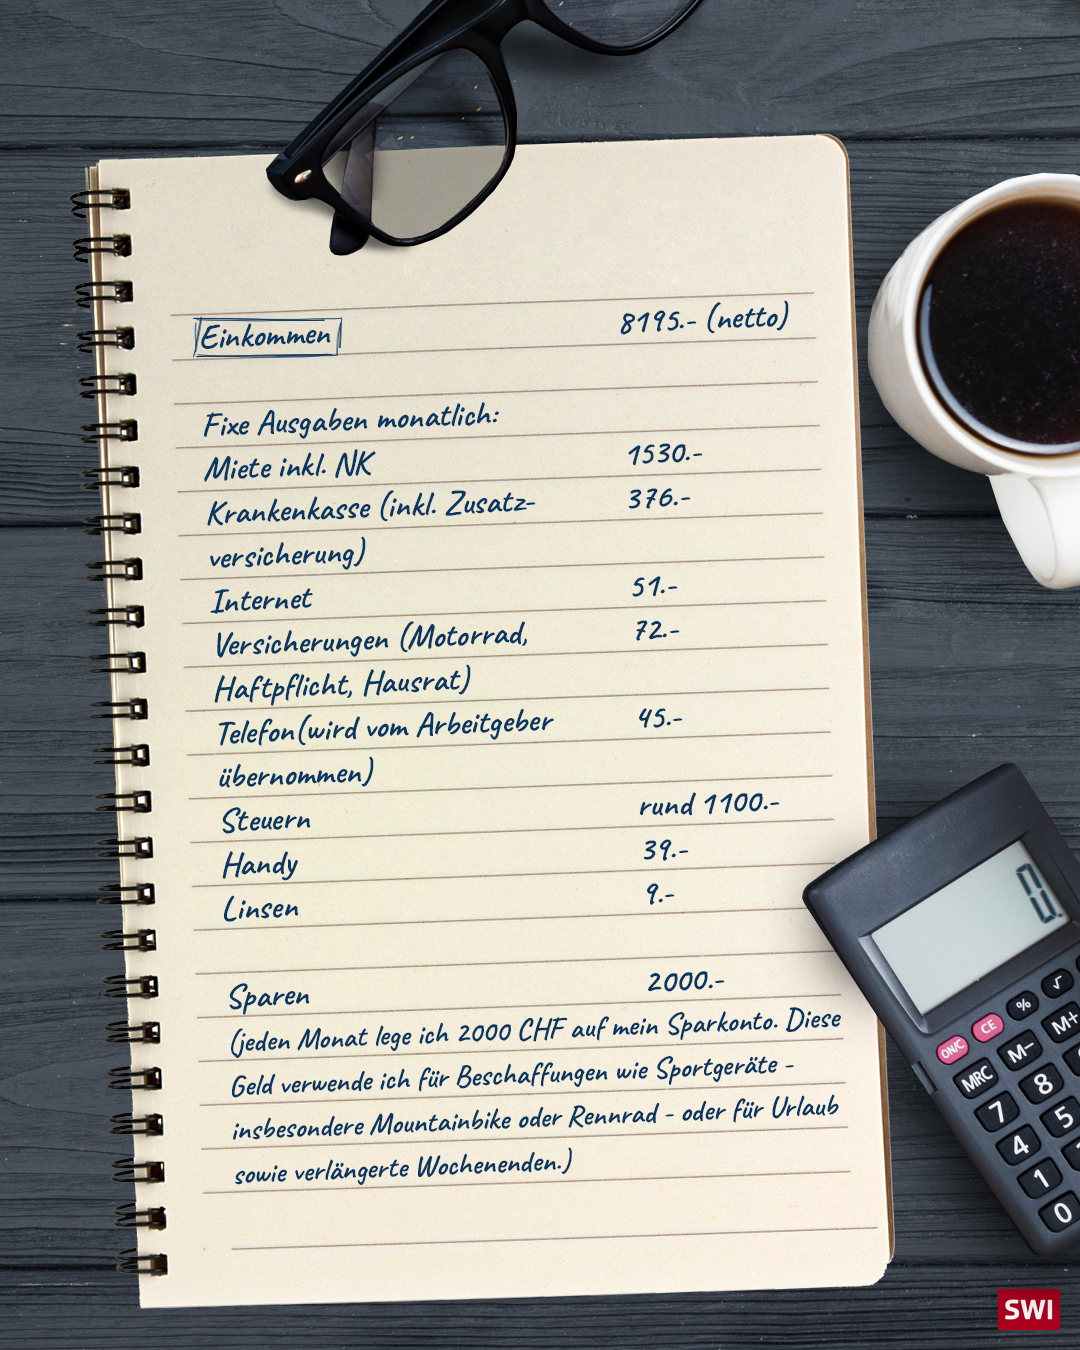 Einkommen 8195.- (netto)
Fixe Ausgaben monatlich:
Miete inkl. NK 1530.-
Krankenkasse (inkl. Zusatz- 376.-
versicherung)
Internet 51.-
Versicherungen (Motorrad, 72.-
Haftpflicht, Hausrat)
Telefon(wird vom Arbeitgeber 45.-
übernommen)
Steuern rund 1100.-
Handy 39.-
Linsen 9.-
Sparen 2000.-
(jeden Monat lege ich 2000 CHF auf mein Sparkonto. Diese
Geld verwende ich für Beschaffungen wie Sportgeräte -
insbesondere Mountainbike oder Rennrad - oder für Urlaub
sowie verlängerte Wochenenden.)
0.
% √
ON/C CE M+
MRC M−
7 8
4 5
1
0
SWI